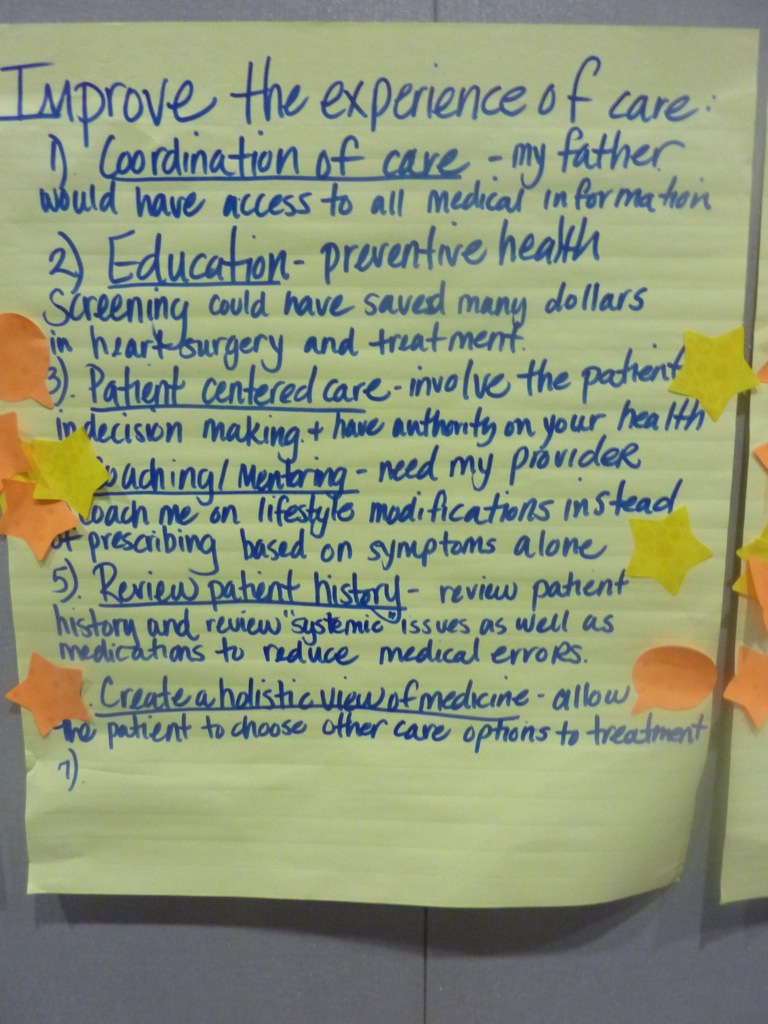 Improve the experience of care:
1) Coordination of care - my father
would have access to all medical information
2) Education - preventive health
Screening could have saved many dollars
in heart surgery and treatment.
3). Patient centered care - involve the patient
in decision making + have authority on your health
oaching/Mentoring - need my provider
oach me on lifestyle modifications instead
of prescribing based on symptoms alone
5). Review patient history - review patient
history and review "systemic" issues as well as
medications to reduce medical errors.
. Create a holistic view of medicine - allow
the patient to choose other care options to treatment
7).